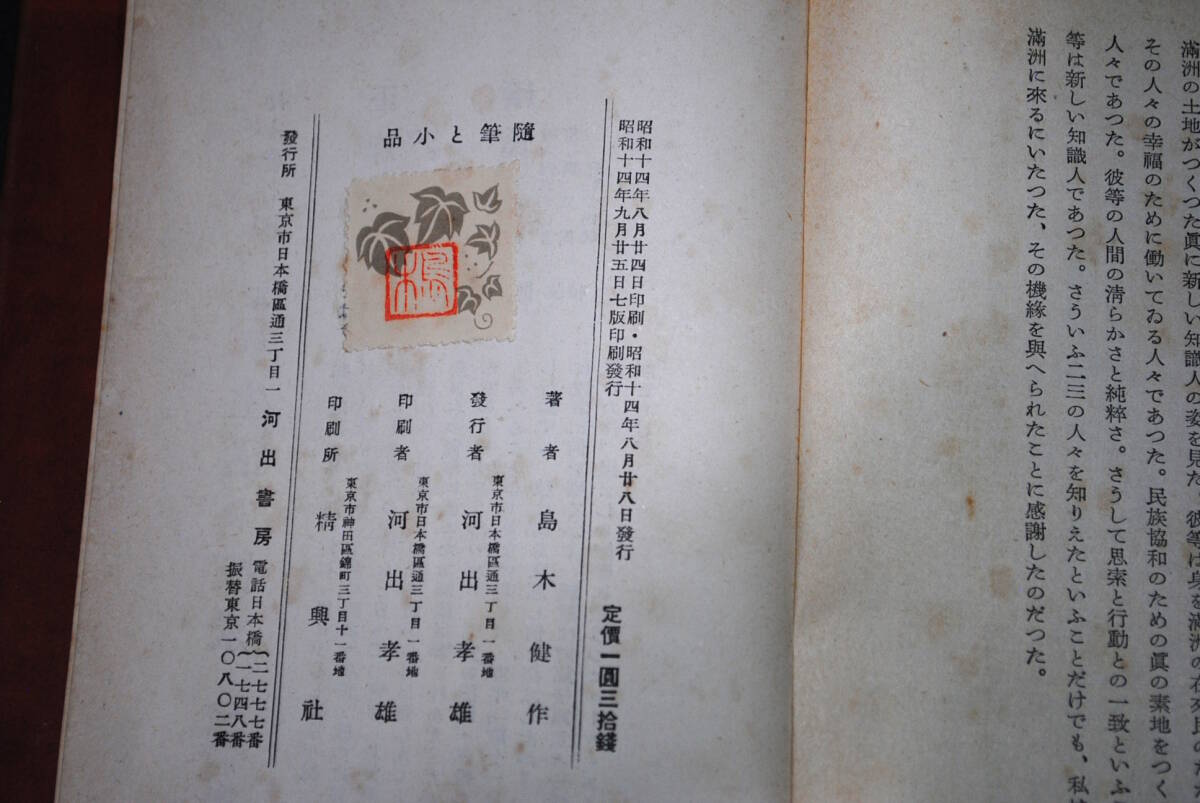 滿洲の土地がつくつた眞に新しい知識人の姿を見た。彼等は
その人々の幸福のために働いてゐる人々であつた。民族協和のための眞の素地をつく
人々であつた。彼等の人間の清らかさと純粹さ。さうして思索と行動との一致といふ
等は新しい知識人であつた。さういふ二三の人々を知りえたといふことだけでも、私は
滿洲に來るにいたつた、その機緣を與へられたことに感謝したのだつた。
昭和十四年八月廿四日印刷・昭和十四年八月廿八日發行
昭和十四年九月廿五日七版印刷發行
定價一圓三拾錢
隨筆と小品
著者 島木健作
東京市日本橋區通三丁目一番地
發行者 河出孝雄
東京市日本橋區通三丁目一番地
印刷者 河出孝雄
東京市神田區錦町三丁目十一番地
印刷所 精興社
發行所 東京市日本橋區通三丁目一 河出書房
電話日本橋{二七七七番
一七四八番
振替東京一〇八〇二番